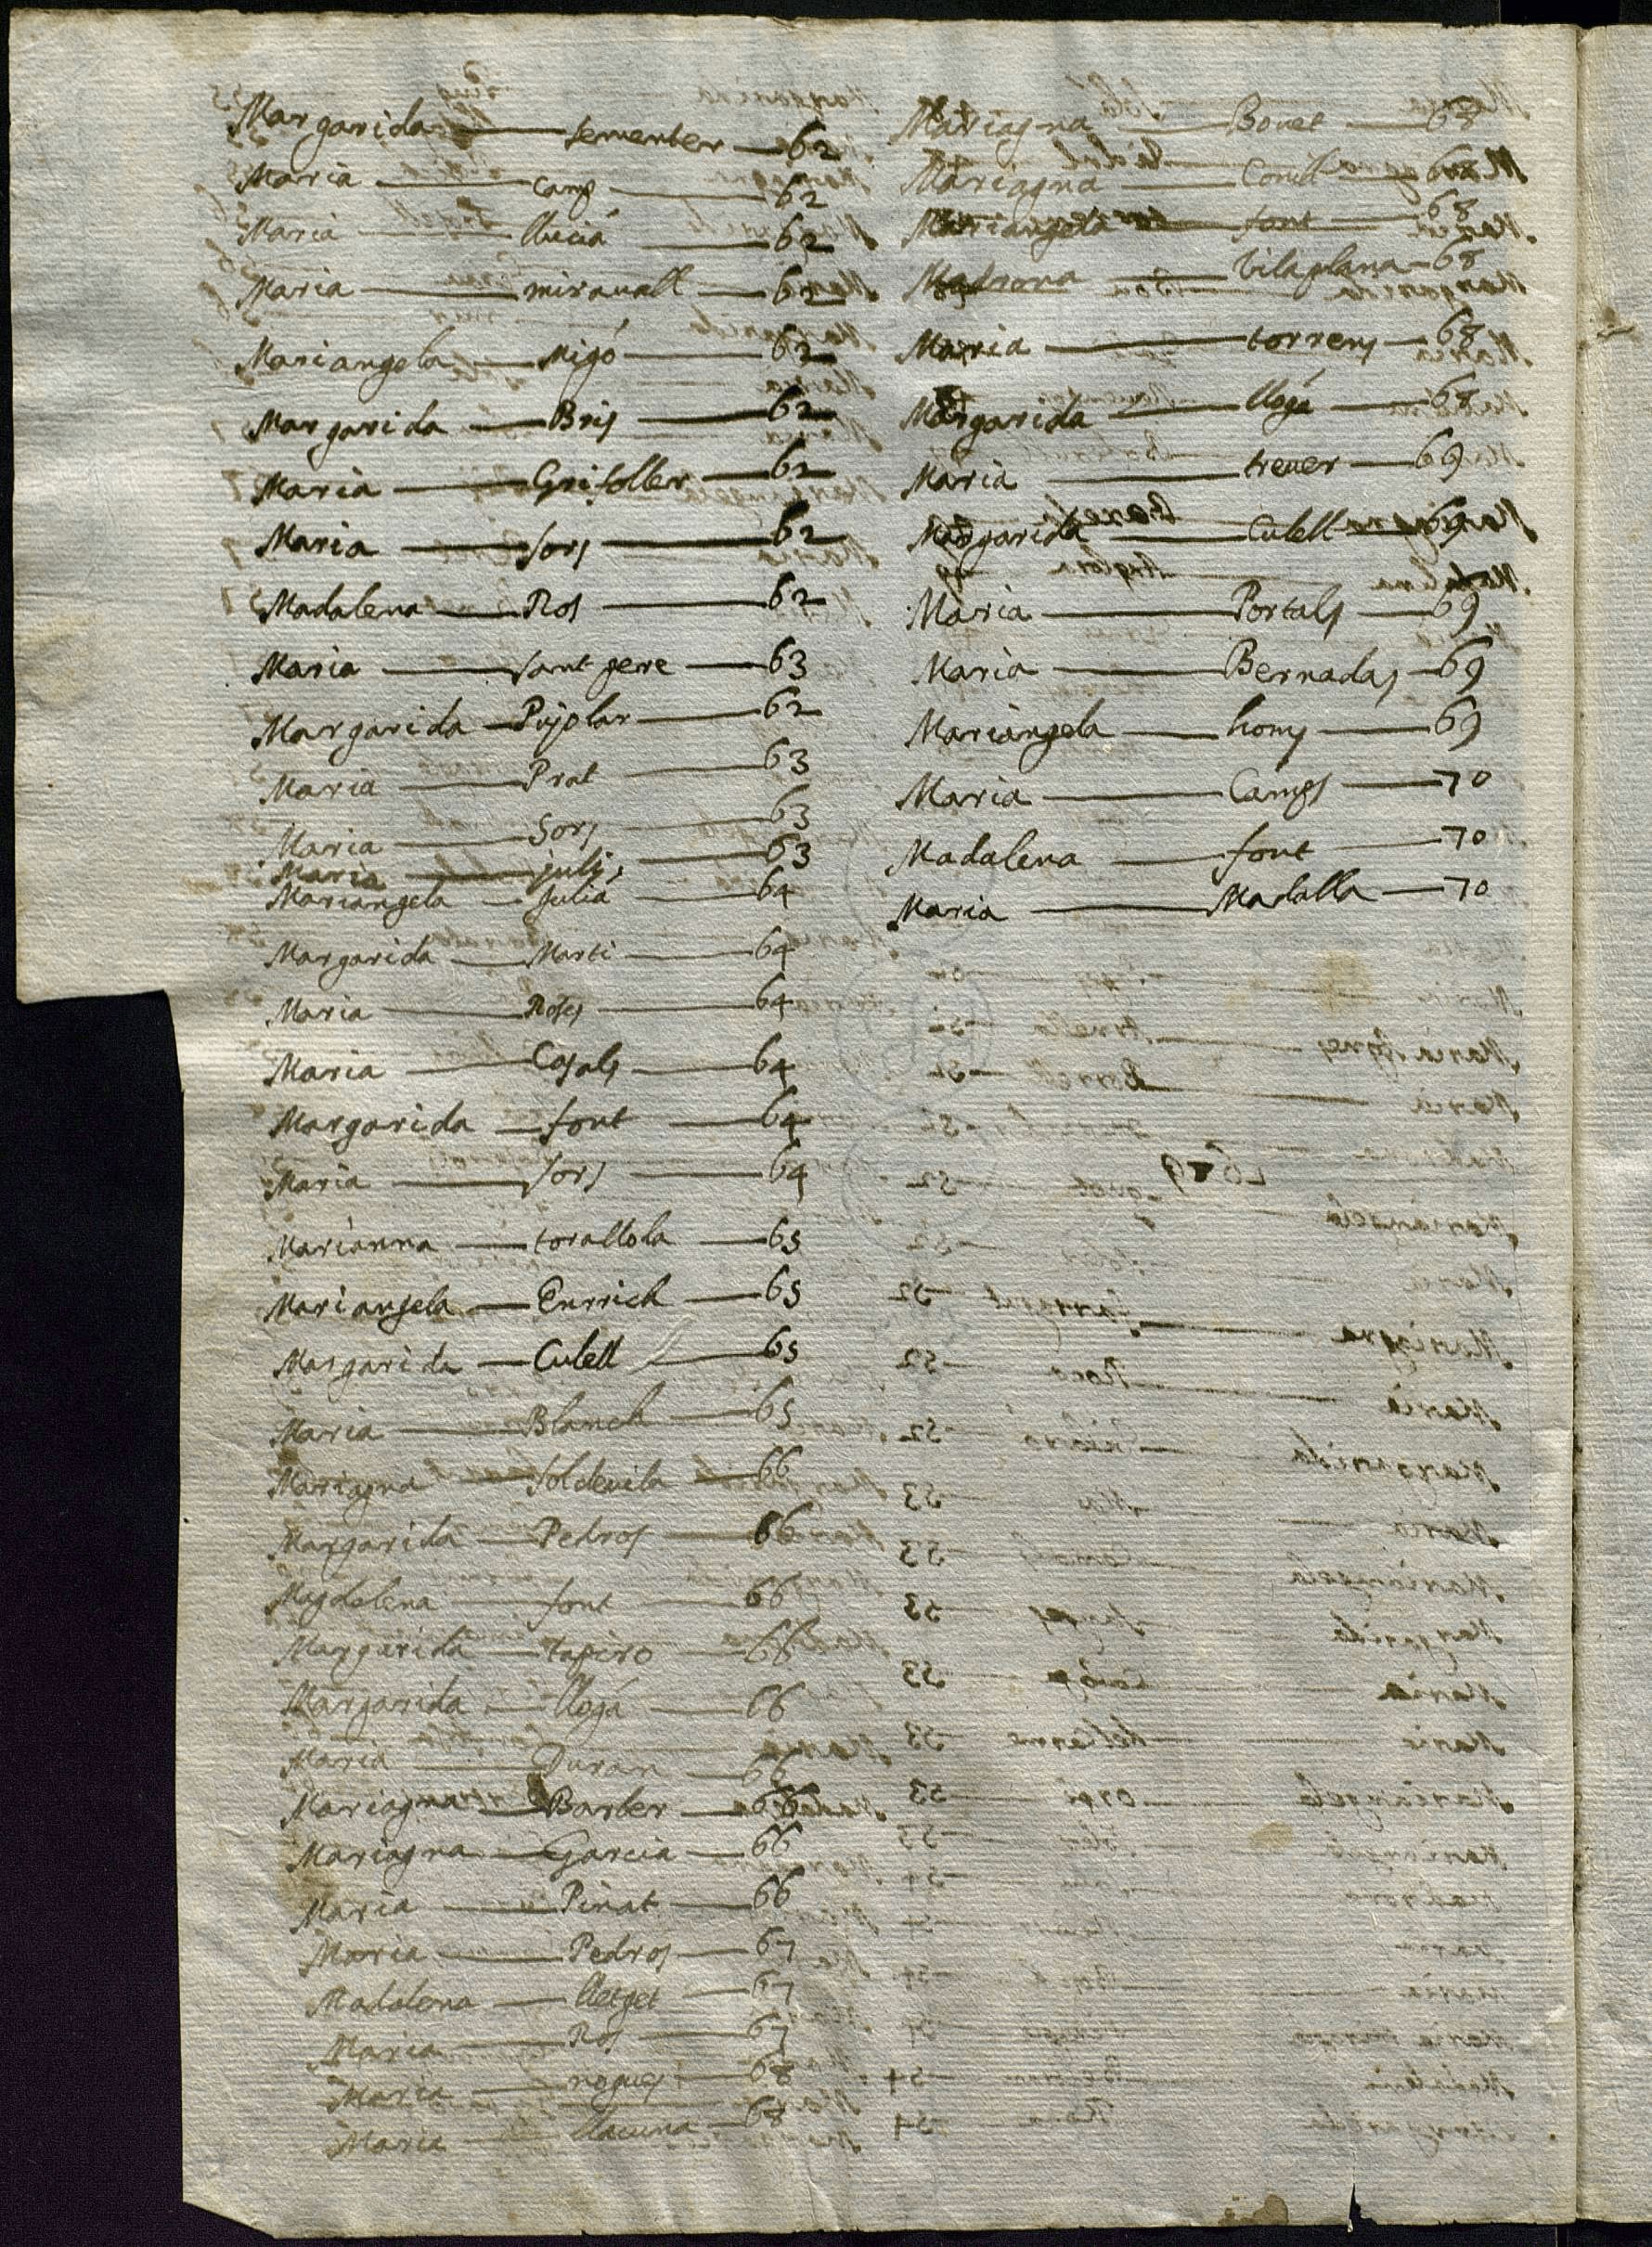 Margarida — sementer — 62
Maria — camp — 62
Maria — lluciá — 62
Maria — mirauall — 62
Mariangela — Migó — 62
Margarida — Bris — 62
Maria — Grifoller — 62
Maria — sors — 62
Madalena — Ros — 62
Maria — sant pere — 63
Margarida — Pujolar — 62
Maria — Prat — 63
Maria — Sors — 63
Maria — julis — 63
Mariangela — Julia — 64
Margarida — Marti — 64
Maria — Roses — 64
Maria — Casals — 64
Margarida — font — 64
Maria — sors — 64
Marianna — torallola — 65
Mariangela — Enrrich — 65
Margarida — Culell — 65
Maria — Blanch — 65
Mariagna — soldeuila — 66
Margarida — Pedros — 66
Magdalena — font — 66
Margarida — tapiro — 66
Margarida — llogá — 66
Maria — Duran — 66
Mariagna — Barber — 66
Mariagna — Garcia — 66
Maria — Pinat — 66
Maria — Pedros — 67
Madalena — lletget — 67
Maria — Ros — 67
Maria — nogues — 68
Maria — llacuna — 68
Mariagna — Bouet — 68
Mariagna — Conill — 68
Mariangela — font — 68
Madrona — Vilaplana — 68
Maria — torrens — 68
Margarida — llogá — 68
Maria — treuer — 69
Margarida — Culell — 69
Maria — Portals — 69
Maria — Bernadas — 69
Mariangela — homs — 69
Maria — Camps — 70
Madalena — font — 70
Maria — Madalla — 70